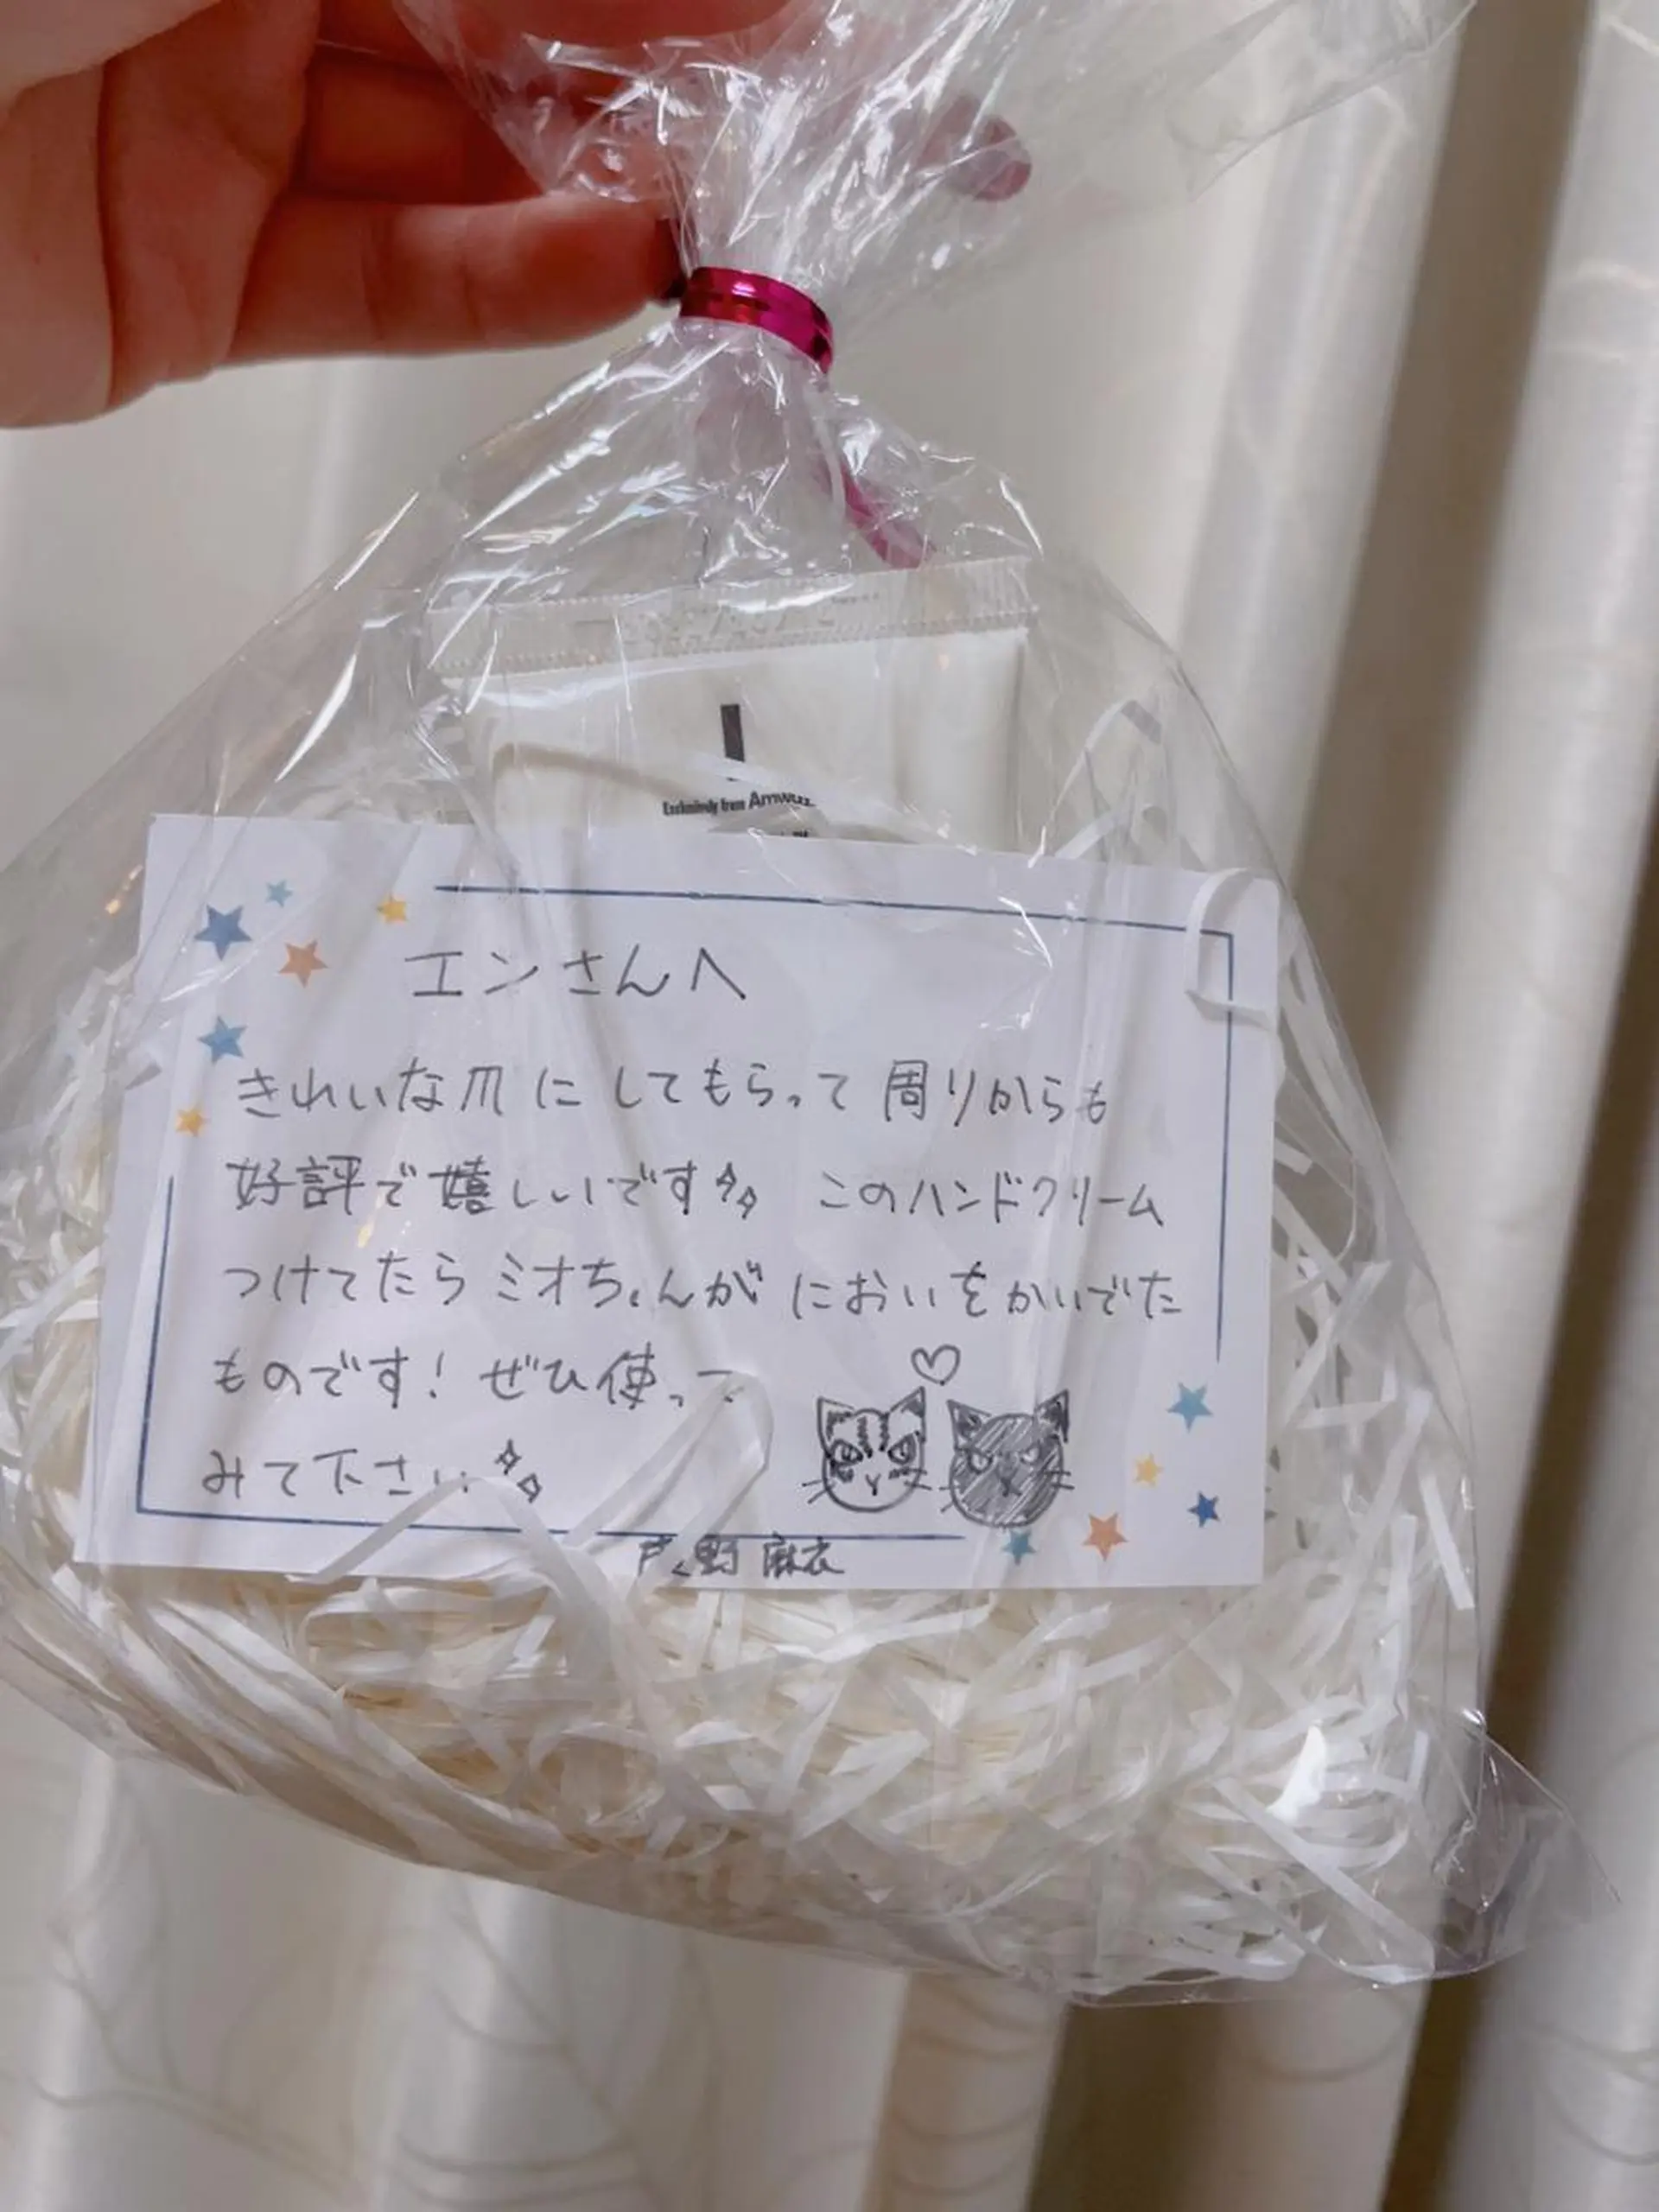 Exclusively from Amway
エンさんへ
きれいな爪にしてもらって周りからも
好評で嬉しいです このハンドクリーム
つけてたらミオちゃんがにおいをかいでた
ものです! ぜひ使って
みて下さい
野 麻衣